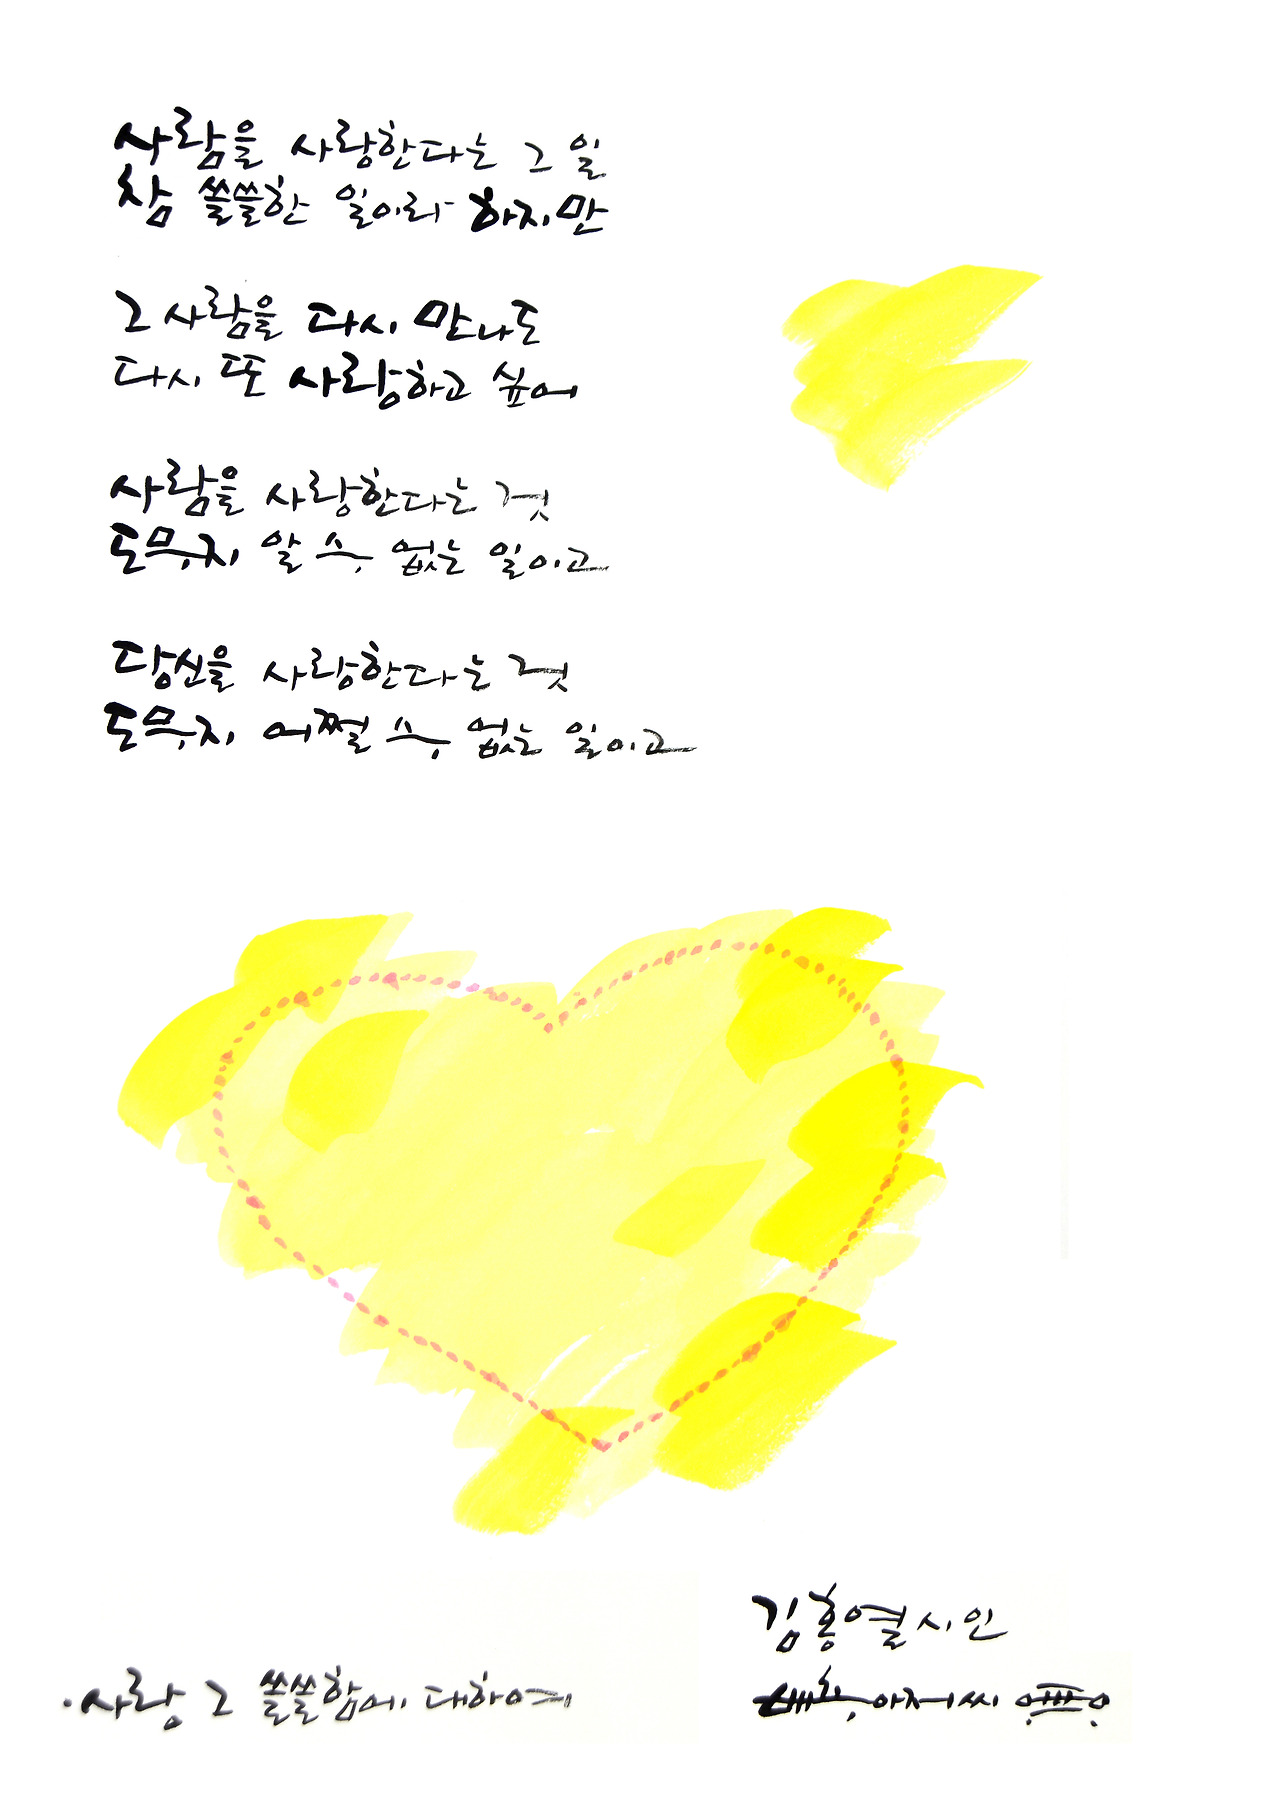 사람을 사랑한다는 그 일
참 쓸쓸한 일이라 하지만
그 사람을 다시 만나도
다시 또 사랑하고 싶어
사람을 사랑한다는 것
도무지 알 수 없는 일이고
당신을 사랑한다는 것
도무지 어쩔 수 없는 일이고
김홍열시인
·사랑 그 쓸쓸함에 대하여
아저씨